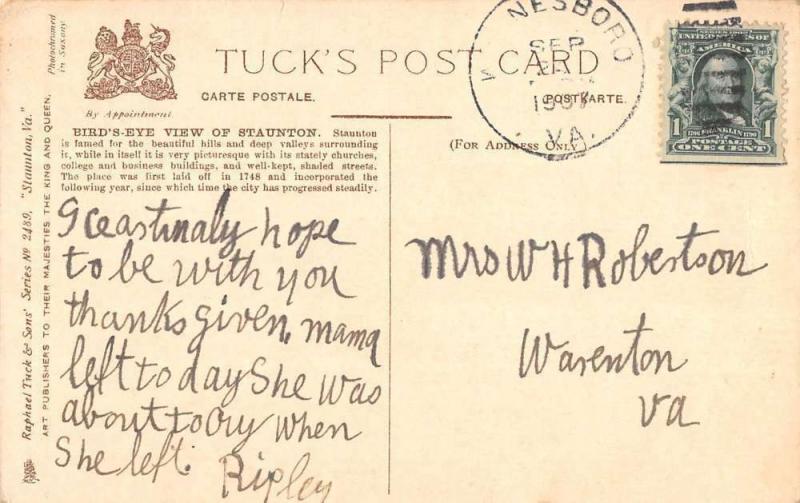 TUCK'S POST CARD
CARTE POSTALE.
POSTKARTE.
By Appointment
Photochromed
in Saxony
Raphael Tuck & Sons' Series No 2489, "Staunton, Va."
ART PUBLISHERS TO THEIR MAJESTIES THE KING AND QUEEN.
BIRD'S-EYE VIEW OF STAUNTON. Staunton
is famed for the beautiful hills and deep valleys surrounding
it, while in itself it is very picturesque with its stately churches,
college and business buildings, and well-kept, shaded streets.
The place was first laid off in 1748 and incorporated the
following year, since which time the city has progressed steadily.
(For Address Only)
NESBORO
SEP
VA.
SERIES 1902
UNITED STATES OF
AMERICA
1706 FRANKLIN 1790
1 1
POSTAGE
ONE CENT
I ceastinaly hope
to be with you
thanks given. mama
left to day She was
about to cry when
She left.
Ripley
Mrs W H Robertson
Warenton
va